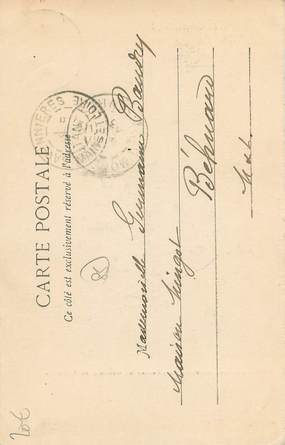 CARTE POSTALE
Ce côté est exclusivement réservé à l'adresse
Mademoiselle Germaine Baudry
Maison Mingot
Béhuard
M & L
20€